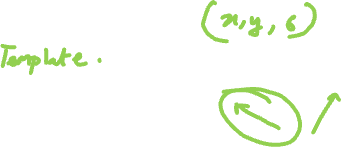 (x, y, s)
Template.